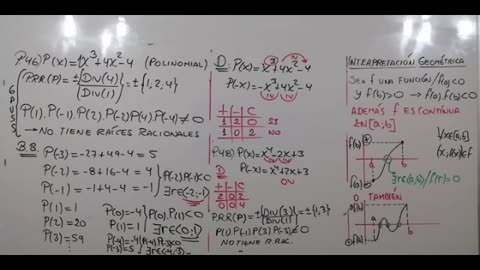 P.46) P(x) = x³+4x²-4 (POLINOMIAL)
GAUSS
PRR(P) = ±{DIV(4)/DIV(1)} = ±{1,2,4}
P(1).P(-1).P(2).P(-2)P(4)P(-4)≠0
→ NO TIENE RAÍCES RACIONALES
P(-2) = -8+16-4 = 4
P(-1) = -1+4-4 = -1
P(-2).P(-1)<0
∃r∈(-2;-1)
P(1) = 1
P(2) = 20
P(3) = 59
P(0)=-4
P(1)=1
P(0).P(1)<0
∃r∈(0;1)
D: P(x) = x³+4x²-4
P(-x) = -x³+4x²-4
+ | - | C
1 | 2 | 0 SI
1 | 0 | 2 NO
P.48) P(x) = x⁴-2x+3
P(-x) = x⁴+2x+3
0V
D
+ | - | C
2 | 0 | 2
0 | 0 | 4
P.RR(P) = ±{DIV(3)/DIV(1)} = ±{1,3}
P(1).P(-1)P(3)P(-3)≠0
NO TIENE R.RAC.
INTERPRETACIÓN GEOMÉTRICA
SEA f UNA FUNCIÓN/f(a)<0
Y f(b)>0 → f(a).f(b)<0
ADEMÁS f ES CONTÍNUA
EN [a;b]
f(b)
a
b
f(a)
∃r∈(a;b)/f(r)=0
TAMBIÉN
f(b)
a
b
f(a)